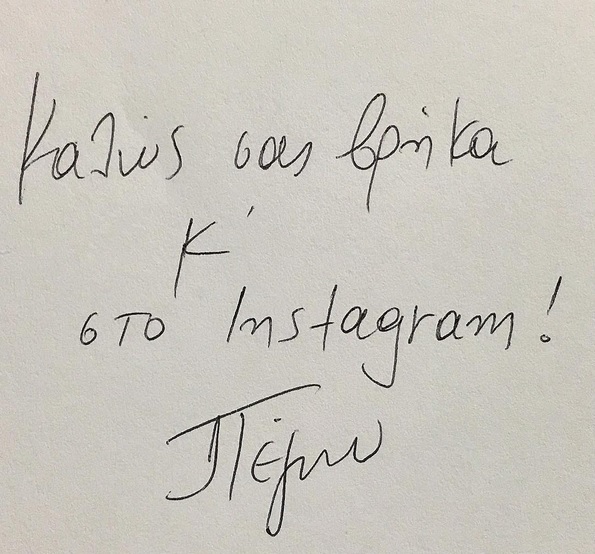 Καλώς σας βρήκα
κ'
στο Instagram!